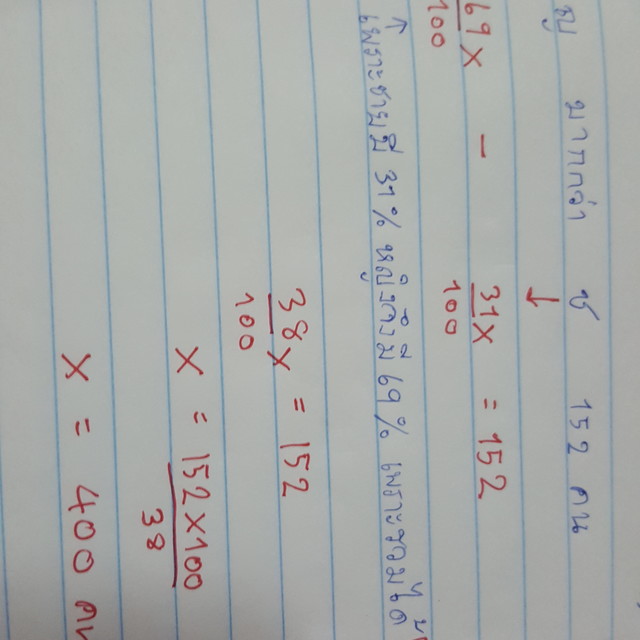 ญ มากกว่า ช 152 คน
↓
69x/100 - 31x/100 = 152
↑ เพราะชายมี 31% หญิงจึงมี 69% เพราะชาย
38/100 x = 152
x = 152x100/38
x = 400 คน